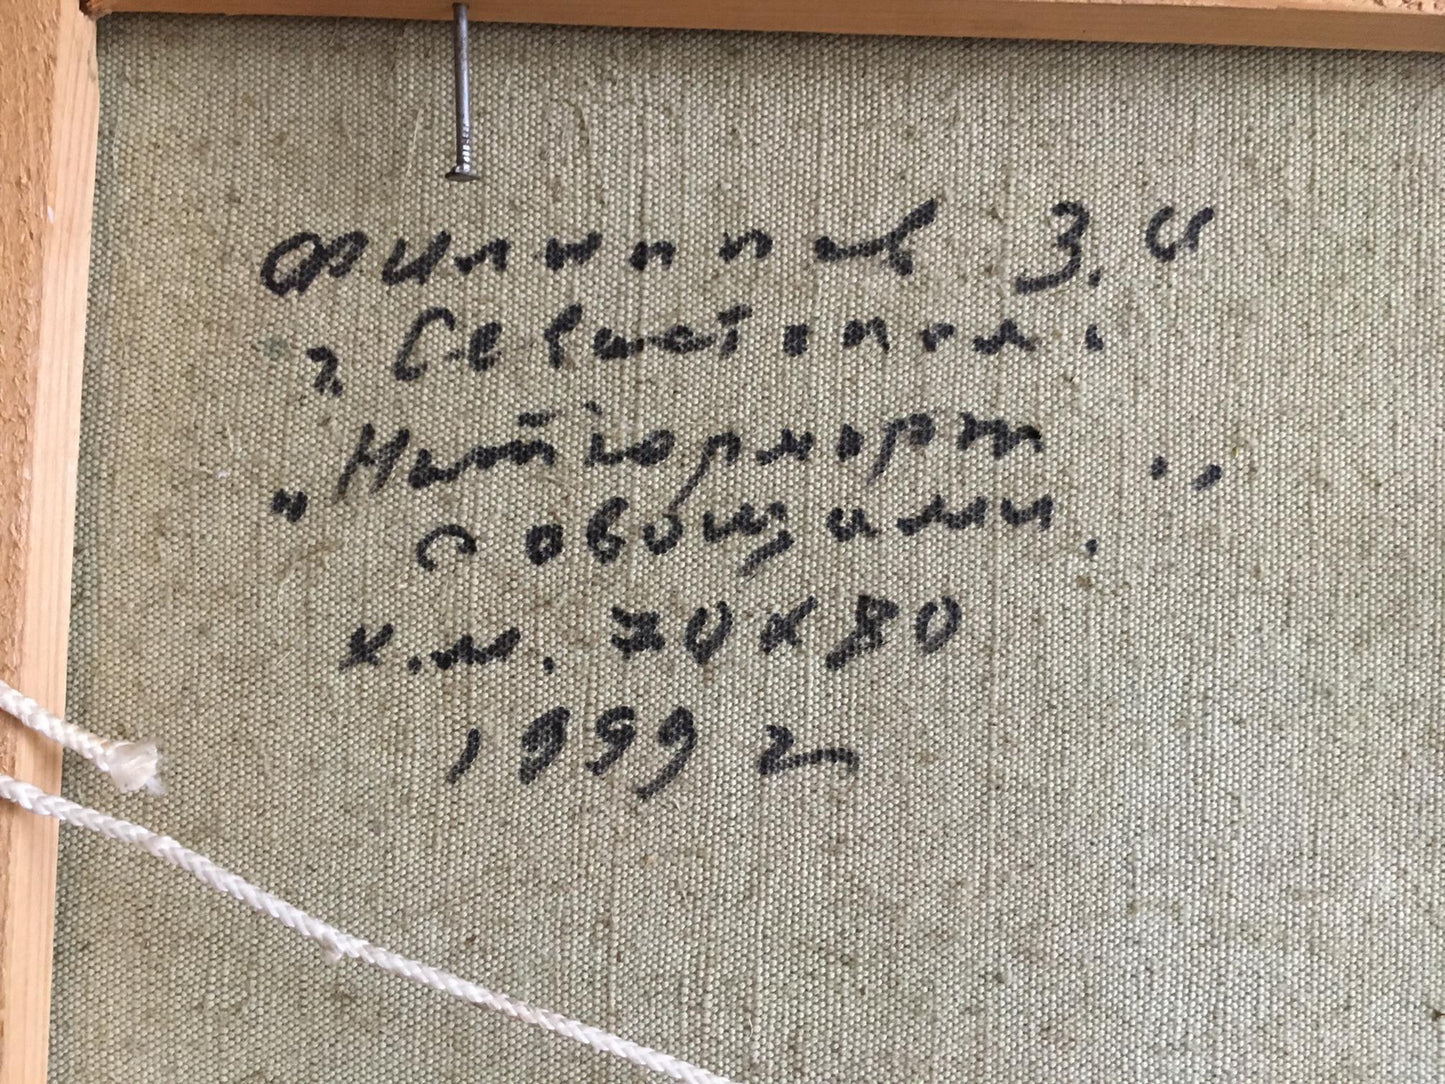 Филиппов З. И
г Севастополь
"Натюрморт
с овощами."
х.м. 70x80
1999 г